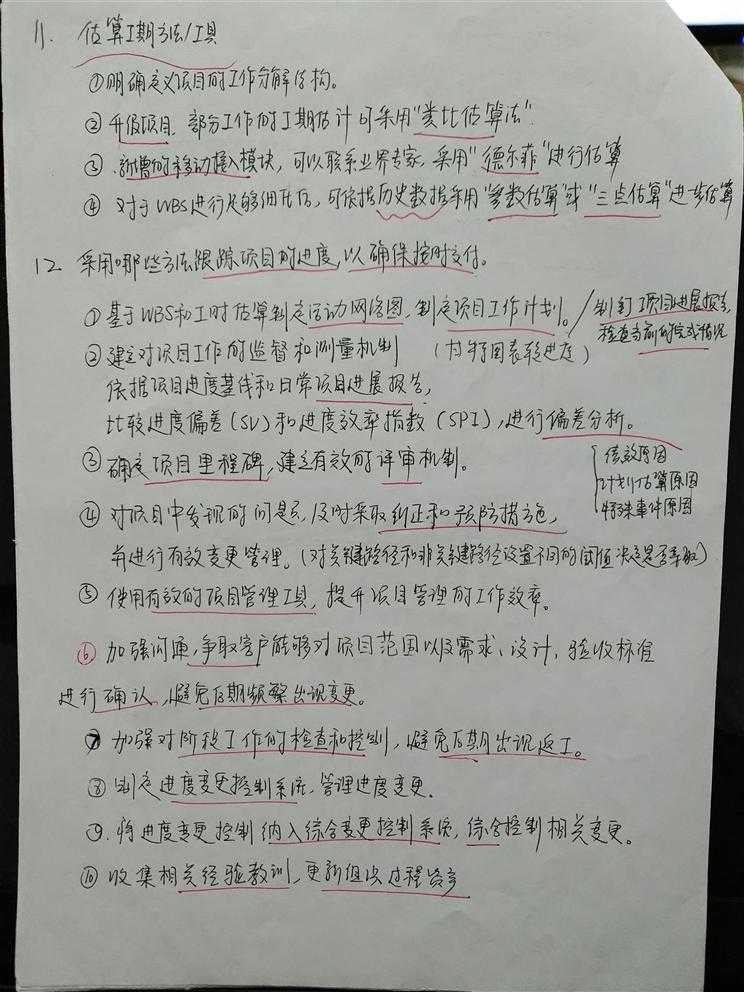 11. 估算工期方法/工具
①明确定义项目的工作分解结构。
②升级项目,部分工作的工期估计可采用"类比估算法".
③.新增的移动接入模块,可以联系业界专家,采用"德尔菲"进行估算
④ 对于WBS进行足够细化后,可依据历史数据采用"参数估算"或"三点估算"进一步估算
12. 采用哪些方法跟踪项目的进度,以确保按时交付。
①基于WBS和工时估算制定活动网络图,制定项目工作计划。/制订项目进展报告,
检查当前的完成情况
②建立对项目工作的监督和测量机制 (对实际图表较进度)
依据项目进度基线和日常项目进展报告,
比较进度偏差(SV)和进度效率指数(SPI),进行偏差分析。
绩效原因
计划估算原因
特殊事件原因
③确定项目里程碑,建立有效的评审机制。
④对项目中发现的问题,及时采取纠正和预防措施,
并进行有效变更管理。(对关键路径和非关键路径设置不同的阈值决定是否采取)
⑤使用有效的项目管理工具,提升项目管理的工作效率。
⑥加强沟通,争取客户能够对项目范围以及需求、设计、验收标准
进行确认,避免后期频繁出现变更。
⑦加强对阶段工作的检查和控制,避免后期出现返工。
⑧制定进度变更控制系统,管理进度变更。
⑨.将进度变更控制纳入综合变更控制系统,综合控制相关变更。
⑩收集相关经验教训,更新组织过程资产